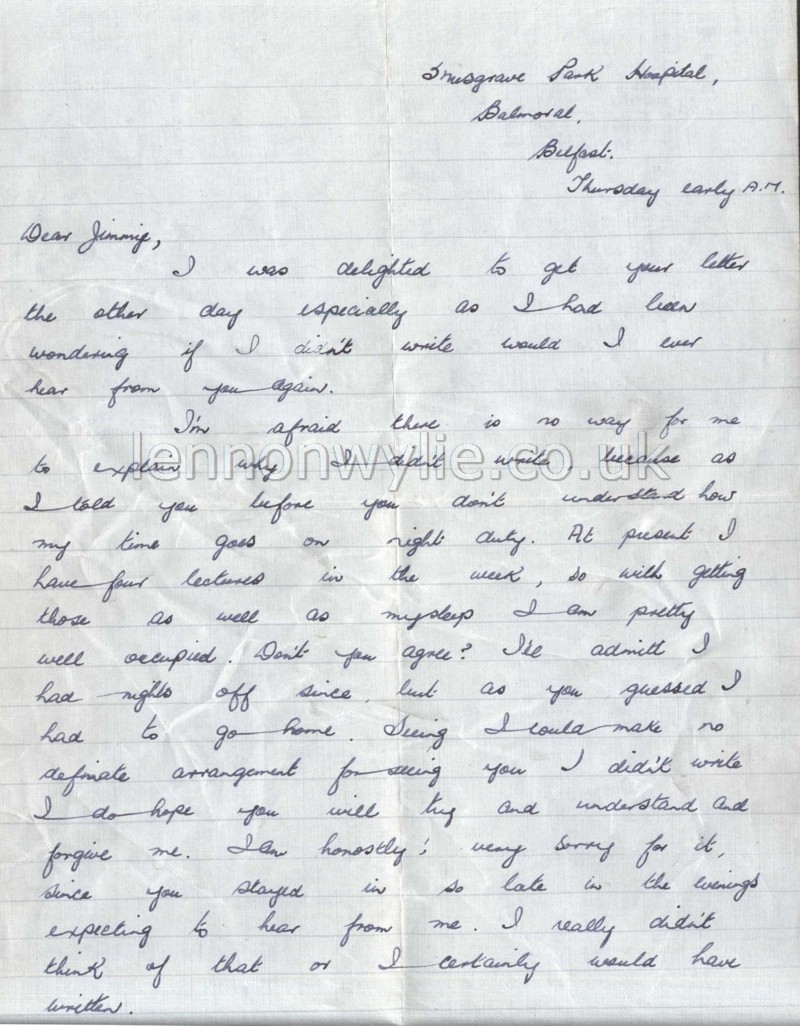 Musgrave Park Hospital,
Balmoral,
Belfast.
Thursday early A.M.
Dear Jimmie,
I was delighted to get your letter
the other day especially as I had been
wondering if I didn't write would I ever
hear from you again.
I'm afraid there is no way for me
to explain why I didn't write, because as
lennonwylie.co.uk
I told you before you don't understand how
my time goes on night duty. At present I
have four lectures in the week, so with getting
those as well as my sleep I am pretty
well occupied. Don't you agree? I'll admitt I
had nights off since, but as you guessed I
had to go home. Seeing I could make no
definate arrangement for seeing you I didn't write
I do hope you will try and understand and
forgive me. I am honostly! very sorry for it,
since you stayed in so late in the evenings
expecting to hear from me. I really didn't
think of that or I certainly would have
written.